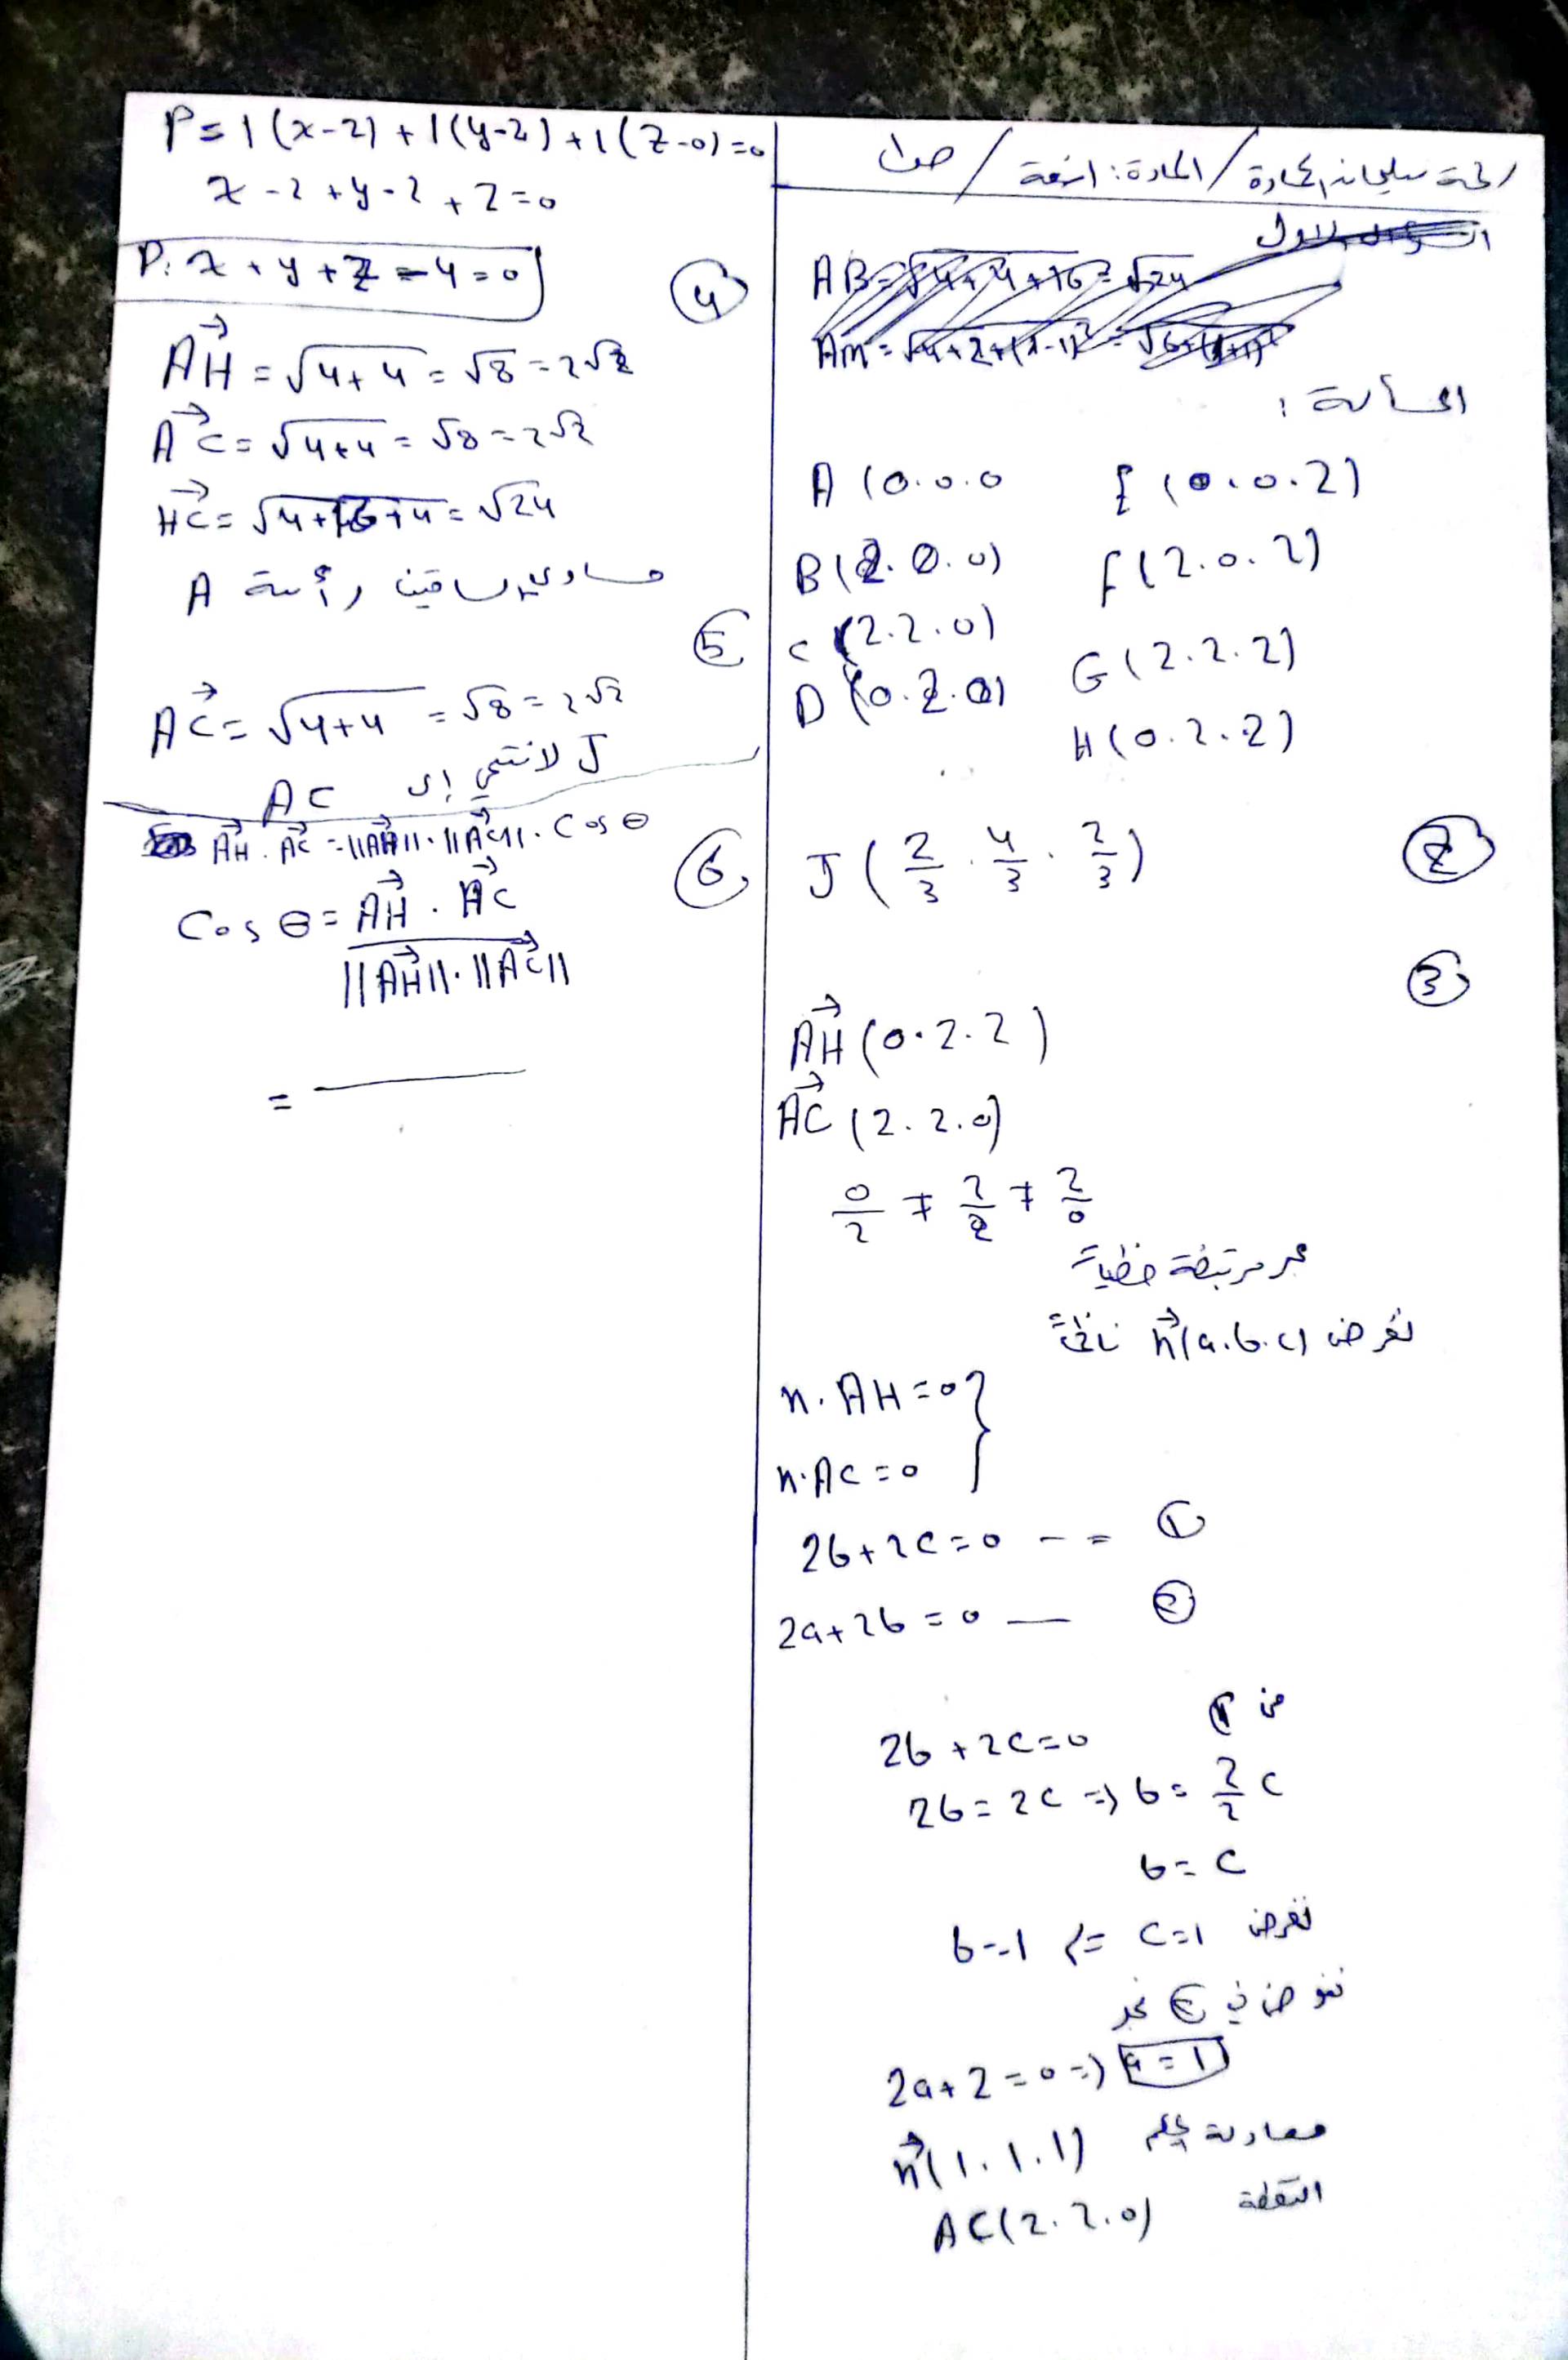 المادة: اشعة / 
A (0.0.0 E (0.0.2)
B (2.0.0) F (2.0.2)
C (2.2.0) G (2.2.2)
D (0.2.0) H (0.2.2)
② J (2/3 . 4/3 . 2/3)
③
AH→ (0.2.2)
AC→ (2.2.0)
0/2 ≠ 2/2 ≠ 2/0
غير مرتبطة خطياً
نفرض n→(a.b.c) ناظماً
n.AH=0 }
n.AC=0
2b+2c=0 -- ①
2a+2b=0 — ②
من ①
2b+2c=0
2b=2c => b=2/2 c
b=c
نفرض c=1 => b=1
نعوض في ② نجد
2a+2=0 => a=1
معادلة
n→(1.1.1)
النقطة AC(2.2.0)
P=1(x-2)+1(y-2)+1(z-0)=0
x-2+y-2+z=0
P: x+y+z-4=0
④
AH→=√4+4=√8=2√2
AC→=√4+4=√8=2√2
HC→=√4+16+4=√24
متساوي الساقين رأسه A
⑤
AC→=√4+4=√8=2√2
J لا تنتمي إلى AC
⑥ AH→.AC→=||AH→||.||AC→||.Cos θ
Cos θ= AH→.AC→ / ||AH→||.||AC→||
= —